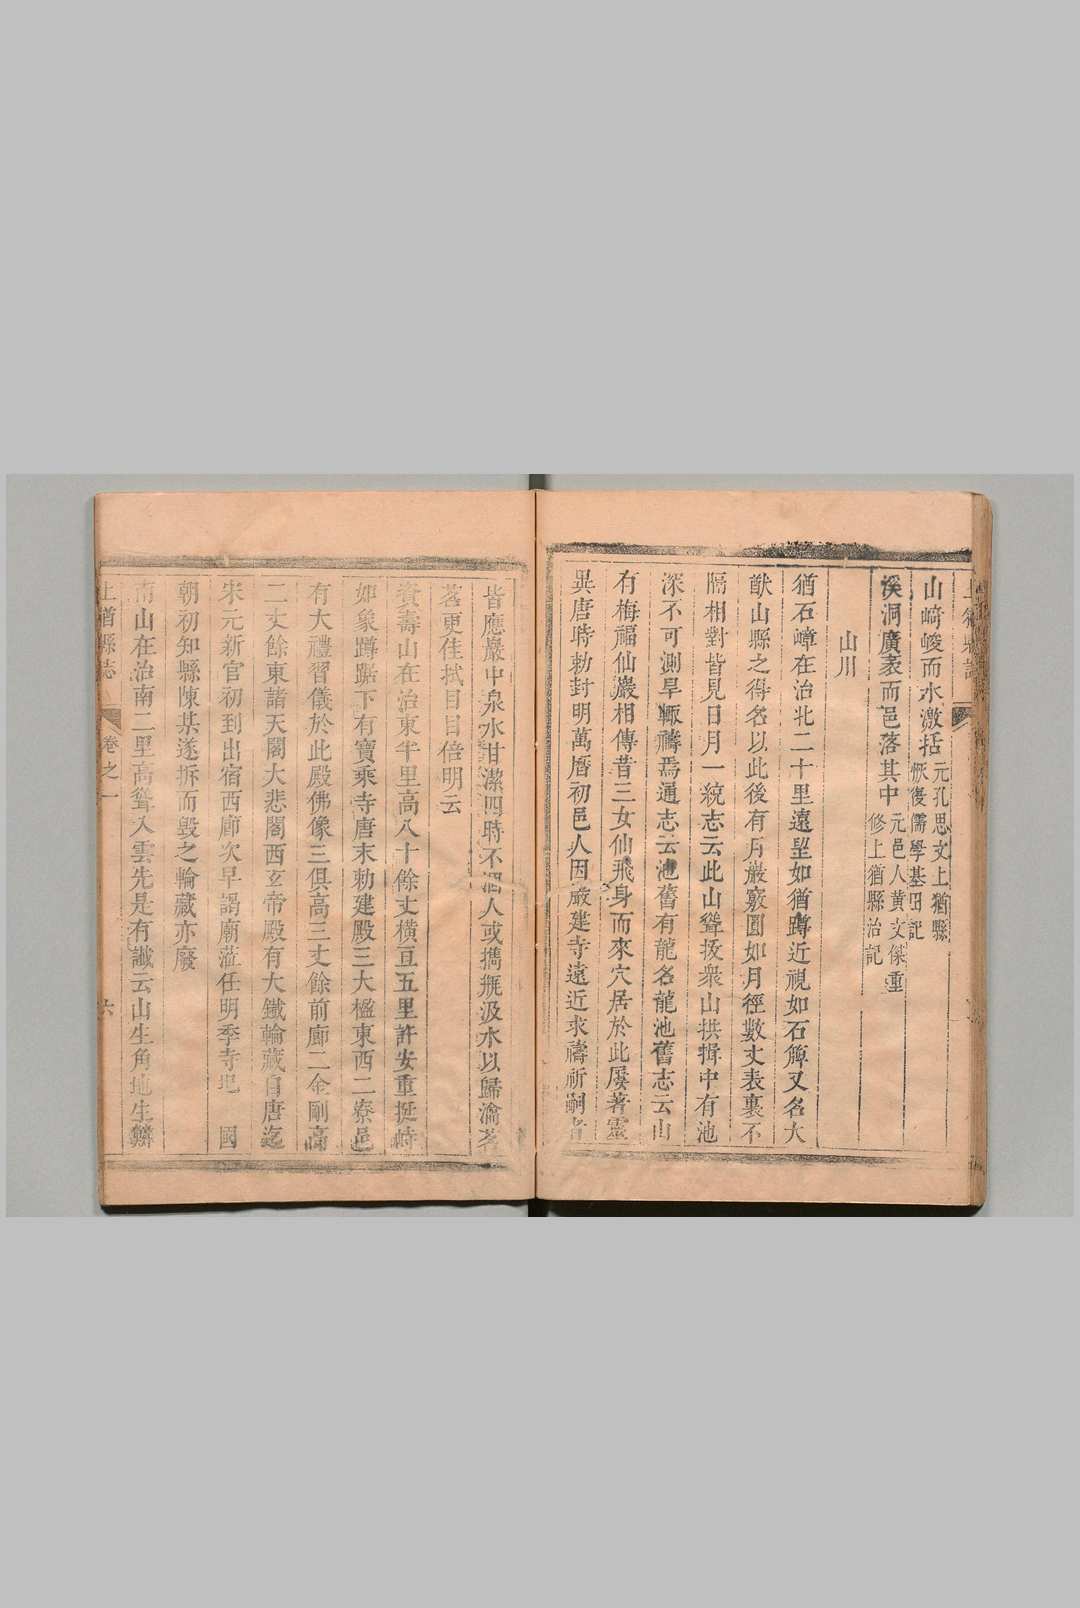 山崎峻而水激括元孔思文上猶縣
恢復儒學基田記
溪洞廣袤而邑落其中元邑人黃文傑重
修上猶縣治記
山川
猶石嶂在治北二十里遠望如猶蹲近視如石嶂又名大
猷山縣之得名以此後有月巖竅圓如月徑數丈表裏不
隔相對皆見日月一統志云此山聳拔衆山拱揖中有池
深不可測旱輙禱焉通志云池舊有龍名龍池舊志云山
有梅福仙巖相傳昔三女仙飛身而來穴居於此屢著靈
異唐時勅封明萬曆初邑人因巖建寺遠近求禱祈嗣者
皆應巖中泉水甘潔四時不涸人或擕瓶汲水以歸瀹茗
茗更佳拭目目倍明云
資壽山在治東半里高八十餘丈橫亘五里許安重挺峙
如象蹲踞下有寶乘寺唐末勅建殿三大楹東西二寮邑
有大禮習儀於此殿佛像三俱高三丈餘前廊二金剛高
二丈餘東諸天閣大悲閣西玄帝殿有大鐵輪藏自唐迄
宋元新官初到出宿西廊次早謁廟涖任明季寺圮 國
朝初知縣陳某遂拆而毀之輪藏亦廢
南山在治南二里高聳入雲先是有讖云山生角地生麟
上猶縣誌 卷之一 六